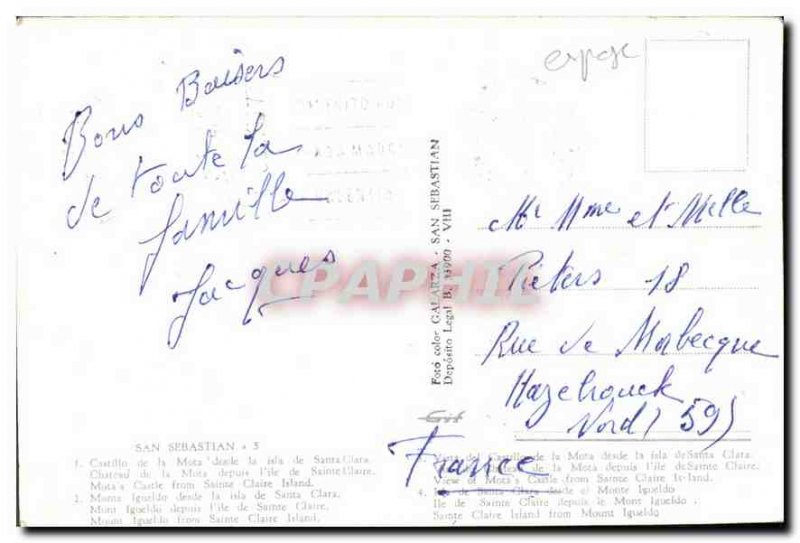 Bons Baisers
de toute la
famille
Jacques
CPAPHIL
Mr Mme et Melle
Pieters 18
Rue de Morbecque
Hazebrouck
Nord (59)
France
Fotó color GALARZA - SAN SEBASTIAN
Depósito Legal B. - VIII
SAN SEBASTIAN - 3
1. Castillo de la Mota desde la isla de Santa Clara.
Chateau de la Mota depuis l'île de Sainte Claire.
Mota's Castle from Sainte Claire Island.
2. Monte Igueldo desde la isla de Santa Clara.
Mont Igueldo depuis l'île de Sainte Claire.
Mount Igueldo from Sainte Claire Island.
del Castillo de la Mota desde la isla de Santa Clara.
de la Mota depuis l'île de Sainte Claire.
View of Mota's Castle from Sainte Claire Island.
4. de Santa Clara desde el Monte Igueldo
Ile de Sainte Claire depuis le Mont Igueldo.
Sainte Claire Island from Mount Igueldo